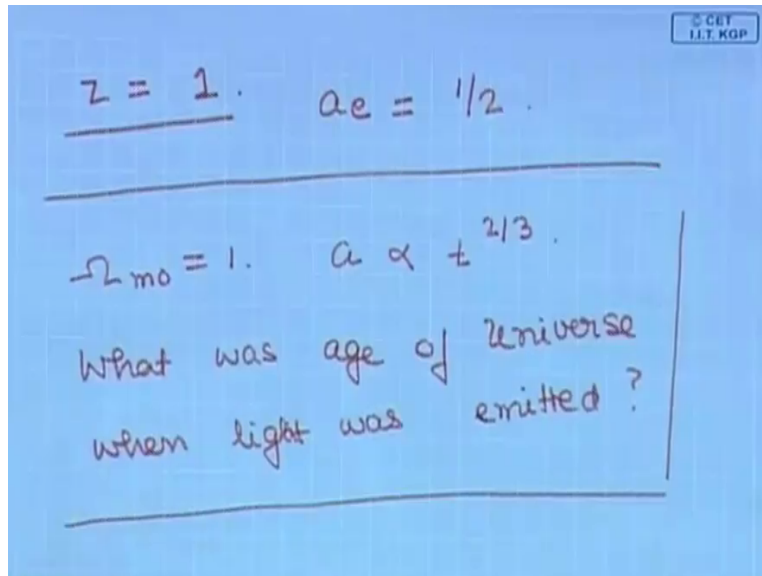 © CET
I.I.T. KGP
z = 1. ae = 1/2.
Ωmo = 1. a ∝ t^2/3.
What was age of Universe
when light was emitted?